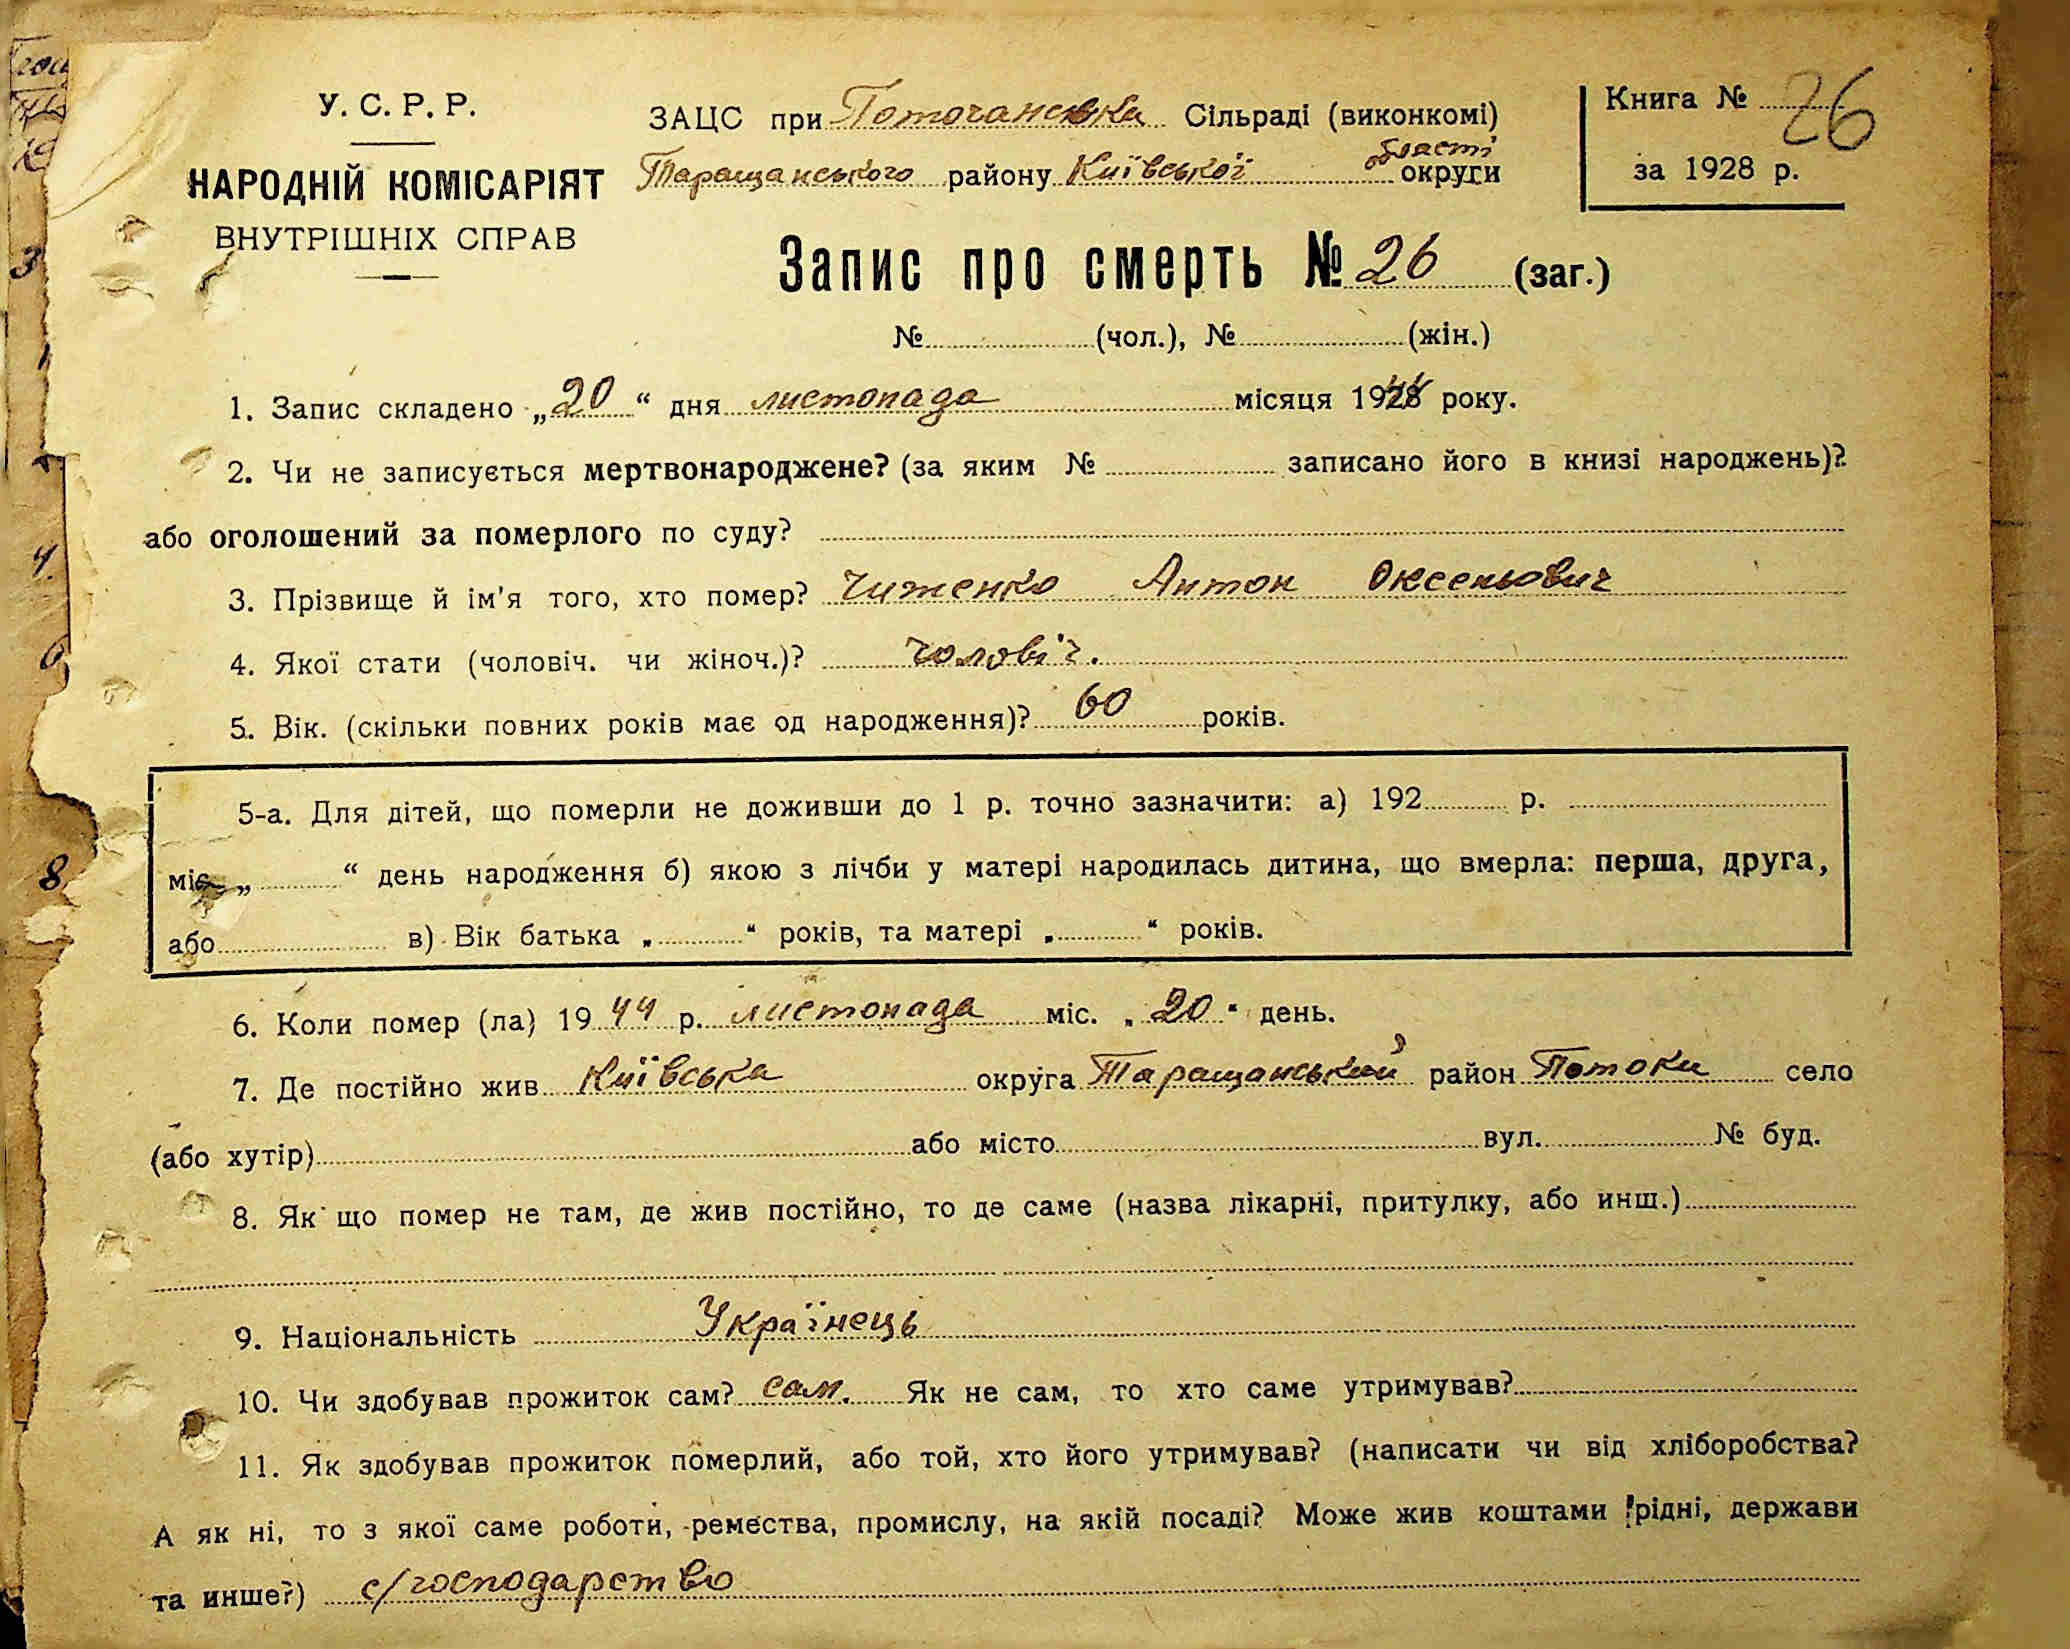 У. С. Р. Р.
НАРОДНІЙ КОМІСАРІЯТ
ВНУТРІШНІХ СПРАВ
ЗАЦС при Поточанська Сільраді (виконкомі)
Таращанського району Київської області округи
Книга № 26
за 1928 р.
Запис про смерть № 26 (заг.)
№ (чол.), № (жін.)
1. Запис складено „20“ дня листопада місяця 1944 року.
2. Чи не записується мертвонароджене? (за яким № записано його в книзі народжень)?
або оголошений за померлого по суду?
3. Прізвище й ім'я того, хто помер? Чиженко Антон Оксеньович
4. Якої стати (чоловіч. чи жіноч.)? чоловіч.
5. Вік. (скільки повних років має од народження)? 60 років.
5-а. Для дітей, що померли не доживши до 1 р. точно зазначити: а) 192 р.
міс. „ “ день народження б) якою з лічби у матері народилась дитина, що вмерла: перша, друга,
або в) Вік батька „ “ років, та матері „ “ років.
6. Коли помер (ла) 1944 р. листопада міс. „20“ день.
7. Де постійно жив Київська округа Таращанський район Потоки село
(або хутір) або місто вул. № буд.
8. Як що помер не там, де жив постійно, то де саме (назва лікарні, притулку, або инш.)
9. Національність Українець
10. Чи здобував прожиток сам? сам. Як не сам, то хто саме утримував?
11. Як здобував прожиток померлий, або той, хто його утримував? (написати чи від хліборобства?
А як ні, то з якої саме роботи, ремества, промислу, на якій посаді? Може жив коштами рідні, держави
та инше?) с/господарство